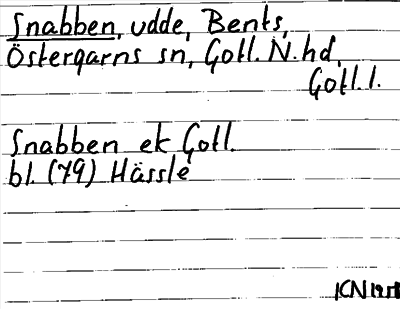 Snabben, udde, Bents,
Östergarns sn, Gotl. N. hd,
Gotl. l.
Snabben ek Gotl.
bl. (79) Hässle